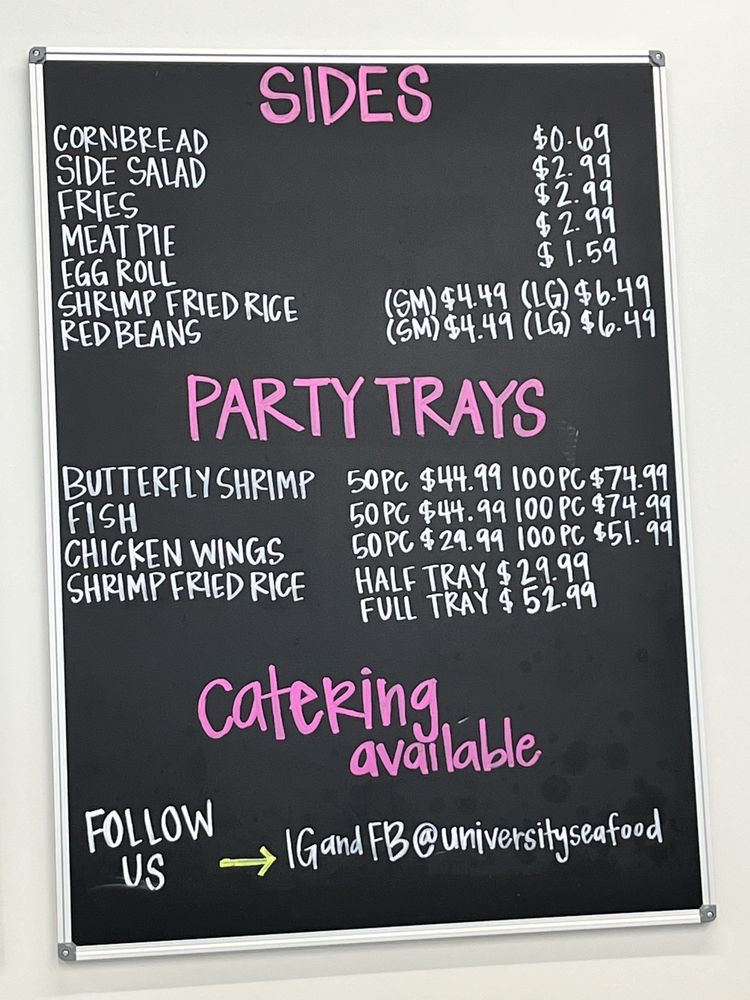 SIDES
CORNBREAD $0.69
SIDE SALAD $2.99
FRIES $2.99
MEAT PIE $2.99
EGG ROLL $1.59
SHRIMP FRIED RICE (SM) $4.49 (LG) $6.49
RED BEANS (SM) $4.49 (LG) $6.49
PARTY TRAYS
BUTTERFLY SHRIMP 50PC $44.99 100PC $74.99
FISH 50PC $44.99 100PC $74.99
CHICKEN WINGS 50PC $29.99 100PC $51.99
SHRIMP FRIED RICE HALF TRAY $29.99
FULL TRAY $52.99
catering
available
FOLLOW
US → IG and FB @universityseafood